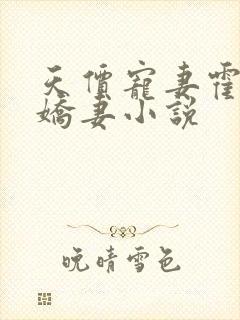 天價寵妻霍
嬌妻小說
晚晴雪色